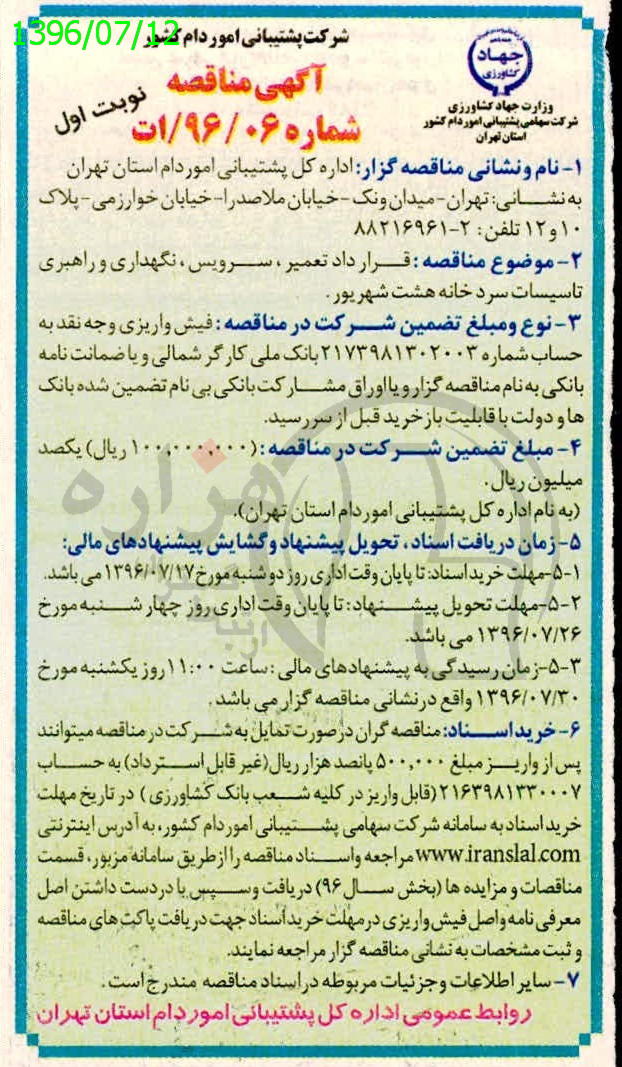 1396/07/12
شرکت پشتیبانی امور دام کشور
جهاد
کشاورزی
وزارت جهاد کشاورزی
شرکت سهامی پشتیبانی امور دام کشور
استان تهران
آگهی مناقصه
شماره ۹۶/۰۶/ات
نوبت اول
۱- نام و نشانی مناقصه گزار: اداره کل پشتیبانی امور دام استان تهران
به نشانی: تهران - میدان ونک - خیابان ملاصدرا - خیابان خوارزمی - پلاک
۱۰ و ۱۲ تلفن: ۲-۸۸۲۱۶۹۶۱
۲- موضوع مناقصه: قرار داد تعمیر، سرویس، نگهداری و راهبری
تاسیسات سرد خانه هشت شهریور.
۳- نوع ومبلغ تضمین شرکت در مناقصه: فیش واریزی وجه نقد به
حساب شماره ۲۱۷۳۹۸۱۳۰۲۰۰۳ بانک ملی کارگر شمالی و یا ضمانت نامه
بانکی به نام مناقصه گزار و یا اوراق مشارکت بانکی بی نام تضمین شده بانک
ها و دولت با قابلیت باز خرید قبل از سررسید.
۴- مبلغ تضمین شرکت در مناقصه: (۱۰۰,۰۰۰,۰۰۰ ریال) یکصد
میلیون ریال.
(به نام اداره کل پشتیبانی امور دام استان تهران).
۵- زمان دریافت اسناد، تحویل پیشنهاد و گشایش پیشنهادهای مالی:
۵-۱-مهلت خرید اسناد: تا پایان وقت اداری روز دوشنبه مورخ ۱۳۹۶/۰۷/۱۷ می باشد.
۵-۲-مهلت تحویل پیشنهاد: تا پایان وقت اداری روز چهار شنبه مورخ
۱۳۹۶/۰۷/۲۶ می باشد.
۵-۳-زمان رسیدگی به پیشنهادهای مالی: ساعت ۱۱:۰۰ روز یکشنبه مورخ
۱۳۹۶/۰۷/۳۰ واقع در نشانی مناقصه گزار می باشد.
۶- خرید اسناد: مناقصه گران در صورت تمایل به شرکت در مناقصه میتوانند
پس از واریز مبلغ ۵۰۰,۰۰۰ پانصد هزار ریال (غیر قابل استرداد) به حساب
۲۱۶۳۹۸۱۳۳۰۰۰۷ (قابل واریز در کلیه شعب بانک کشاورزی) در تاریخ مهلت
خرید اسناد به سامانه شرکت سهامی پشتیبانی امور دام کشور، به آدرس اینترنتی
www.iranslal.com مراجعه و اسناد مناقصه را از طریق سامانه مزبور، قسمت
مناقصات و مزایده ها (بخش سال ۹۶) دریافت و سپس با در دست داشتن اصل
معرفی نامه و اصل فیش واریزی در مهلت خرید اسناد جهت دریافت پاکت های مناقصه
و ثبت مشخصات به نشانی مناقصه گزار مراجعه نمایند.
۷- سایر اطلاعات و جزئیات مربوطه در اسناد مناقصه مندرج است.
روابط عمومی اداره کل پشتیبانی امور دام استان تهران